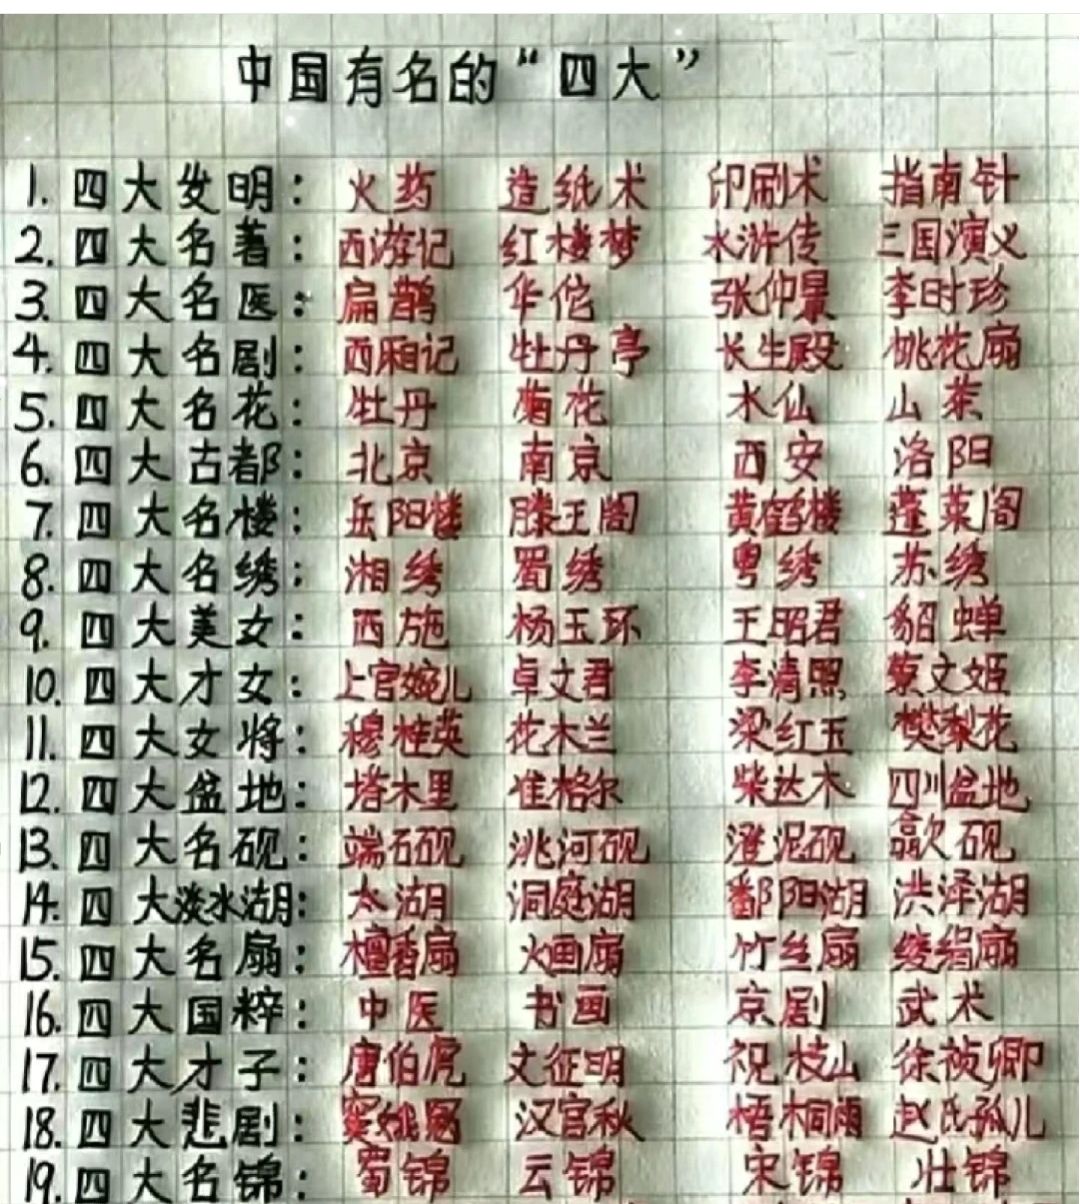 中国有名的“四大”
1. 四大发明: 火药 造纸术 印刷术 指南针
2. 四大名著: 西游记 红楼梦 水浒传 三国演义
3. 四大名医: 扁鹊 华佗 张仲景 李时珍
4. 四大名剧: 西厢记 牡丹亭 长生殿 桃花扇
5. 四大名花: 牡丹 菊花 水仙 山茶
6. 四大古都: 北京 南京 西安 洛阳
7. 四大名楼: 岳阳楼 滕王阁 黄鹤楼 蓬莱阁
8. 四大名绣: 湘绣 蜀绣 粤绣 苏绣
9. 四大美女: 西施 杨玉环 王昭君 貂蝉
10. 四大才女: 上官婉儿 卓文君 李清照 蔡文姬
11. 四大女将: 穆桂英 花木兰 梁红玉 樊梨花
12. 四大盆地: 塔木里 准格尔 柴达木 四川盆地
13. 四大名砚: 端石砚 洮河砚 澄泥砚 歙石砚
14. 四大淡水湖: 太湖 洞庭湖 鄱阳湖 洪泽湖
15. 四大名扇: 檀香扇 火画扇 竹丝扇 绫绢扇
16. 四大国粹: 中医 书画 京剧 武术
17. 四大才子: 唐伯虎 文征明 祝枝山 徐祯卿
18. 四大悲剧: 窦娥冤 汉宫秋 梧桐雨 赵氏孤儿
19. 四大名锦: 蜀锦 云锦 宋锦 壮锦